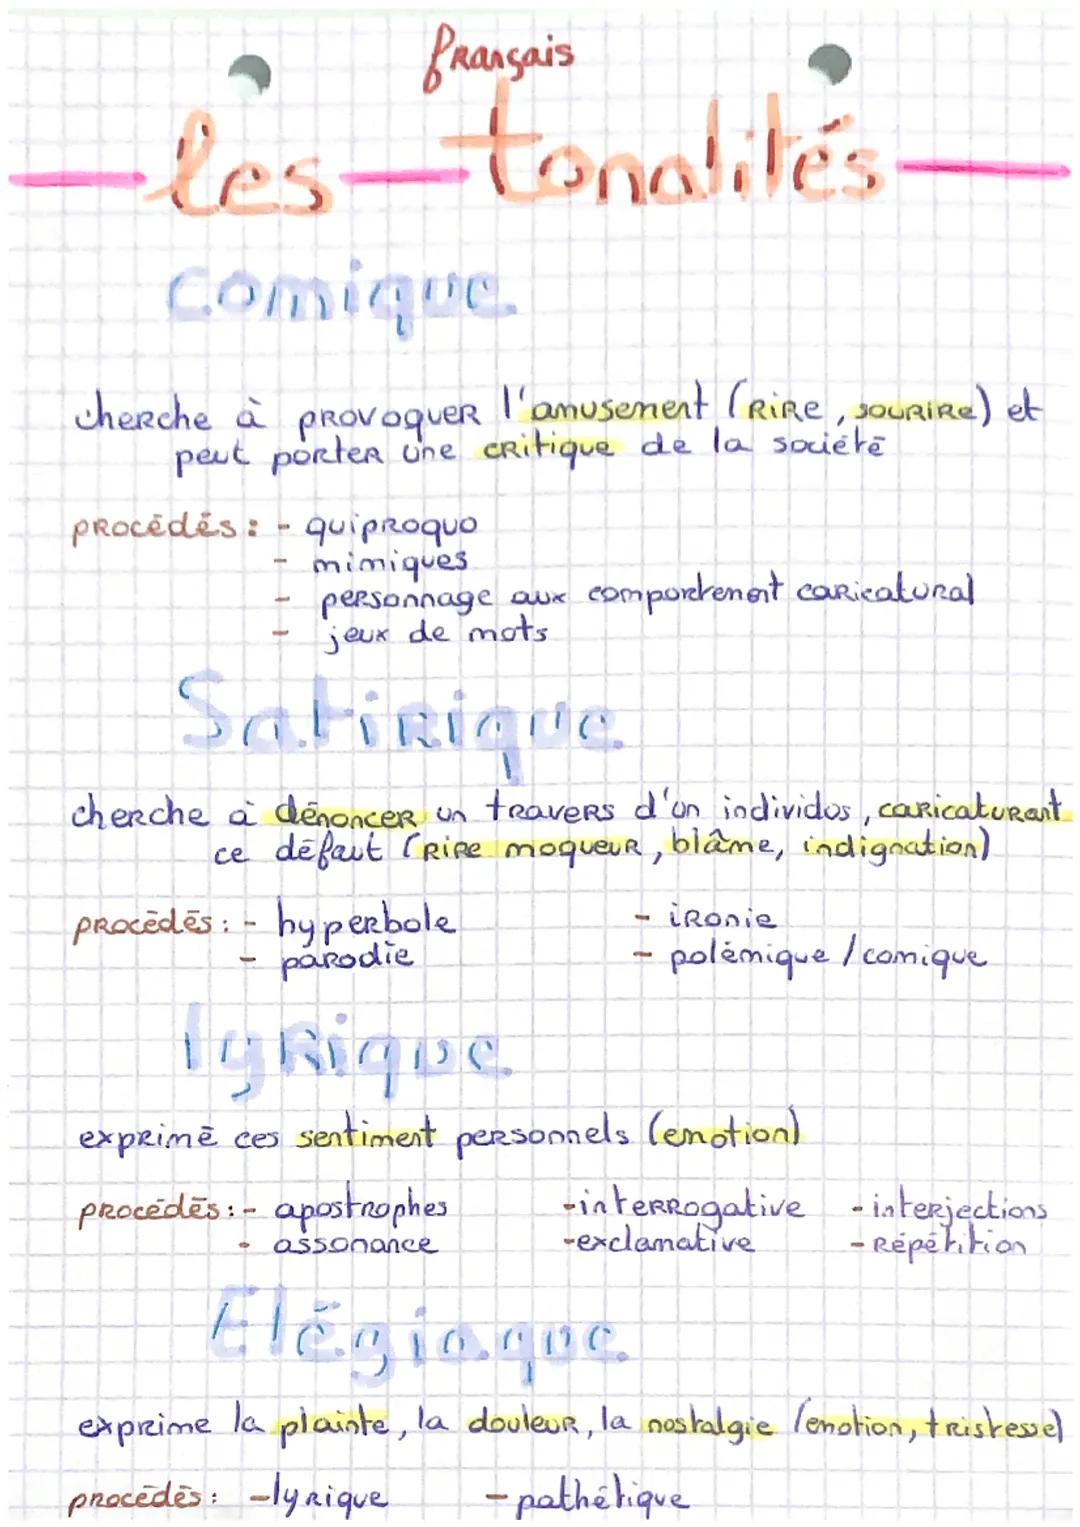 français
les tonalités
comique
cherche à provoquer l'amusement (rire, sourire) et
peut porter une critique de la société
procédés : - quiproquo
- mimiques
- personnage aux comportement caricatural
- jeux de mots
Satirique
cherche à dénoncer un travers d'un individos, caricaturant
ce défaut (rire moqueur, blâme, indignation)
procédés : - hyperbole - ironie
- parodie - polémique / comique
lyrique
exprimé ces sentiment personnels (emotion)
procédés : - apostrophes - interrogative - interjections
- assonance - exclamative - répétition
Elégiaque
exprime la plainte, la douleur, la nostalgie (emotion, tristesse)
procédés : - lyrique - pathétique